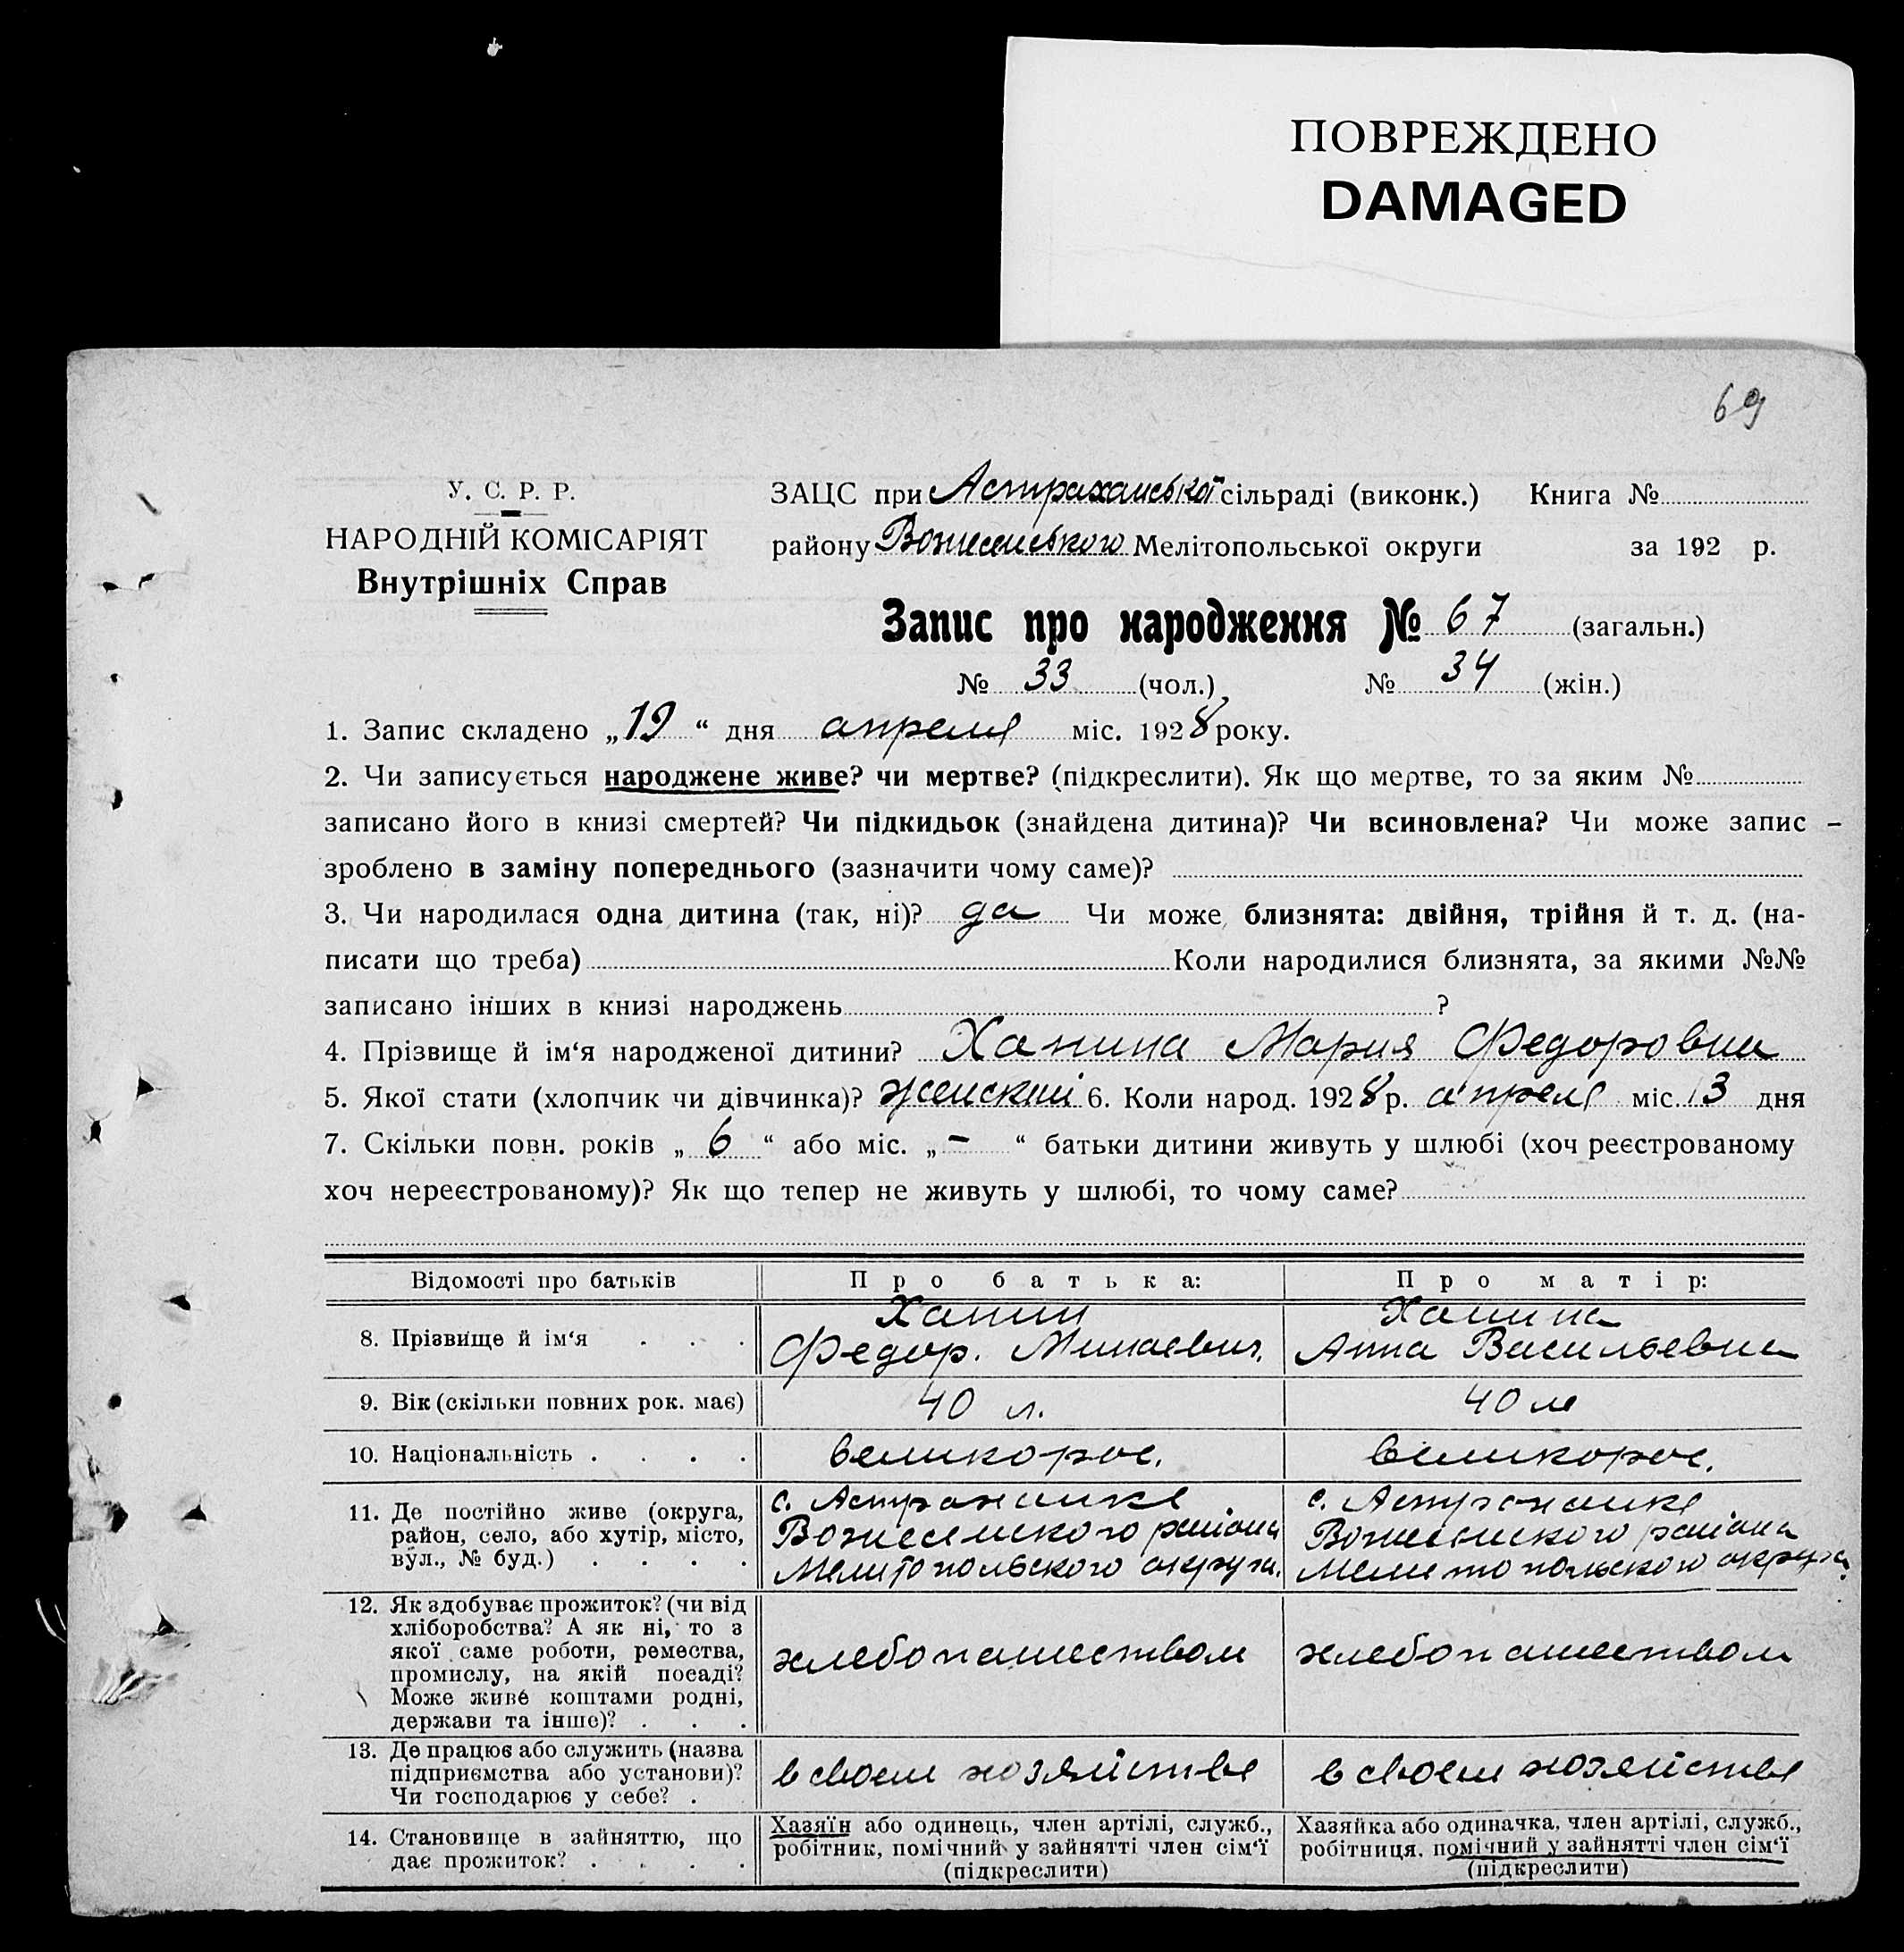 ПОВРЕЖДЕНО
DAMAGED
69
У. С. Р. Р.
НАРОДНІЙ КОМІСАРІЯТ
Внутрішніх Справ
ЗАЦС при Астраханської сільраді (виконк.) Книга №
району Вознесенського Мелітопольської округи за 192 р.
Запис про народження № 67 (загальн.)
№ 33 (чол.) № 34 (жін.)
1. Запис складено „19“ дня апреля міс. 1928 року.
2. Чи записується народжене живе? чи мертве? (підкреслити). Як що мертве, то за яким №
записано його в книзі смертей? Чи підкидьок (знайдена дитина)? Чи всиновлена? Чи може запис –
зроблено в заміну попереднього (зазначити чому саме)?
3. Чи народилася одна дитина (так, ні)? да Чи може близнята: двійня, трійня й т. д. (на-
писати що треба) Коли народилися близнята, за якими №№
записано інших в книзі народжень ?
4. Прізвище й ім‘я народженої дитини? Ханина Мария Федоровна
5. Якої стати (хлопчик чи дівчинка)? женский 6. Коли народ. 1928 р. апреля міс. 13 дня
7. Скільки повн. років „6“ або міс. „–“ батьки дитини живуть у шлюбі (хоч реєстрованому
хоч нереєстрованому)? Як що тепер не живуть у шлюбі, то чому саме?
Відомості про батьків Про батька: Про матір:
8. Прізвище й ім‘я . . . Ханин Ханина
Федор. Минаевич. Анна Васильевна
9. Вік (скільки повних рок. має) 40 л. 40 л
10. Національність . . . . великорос. великорос.
11. Де постійно живе (округа, с. Астраханке с. Астраханке
район, село, або хутір, місто, Вознесенского района Вознесенского района
вул., № буд.) . . . . Мелитопольского округа. Мелитопольского округа.
12. Як здобуває прожиток? (чи від
хліборобства? А як ні, то з
якої саме роботи, ремества, хлебопашеством хлебопашеством
промислу, на якій посаді?
Може живе коштами родні,
держави та інше)? . . .
13. Де працює або служить (назва
підприємства або установи)? в своем хозяйстве в своем хозяйстве
Чи господарює у себе? .
14. Становище в зайняттю, що
дає прожиток? . . . .
Хазяїн або одинець, член артілі, служб.,
робітник, помічний у зайнятті член сім‘ї
(підкреслити)
Хазяйка або одиначка, член артілі, служб.,
робітниця, помічний у зайнятті член сім‘ї
(підкреслити)